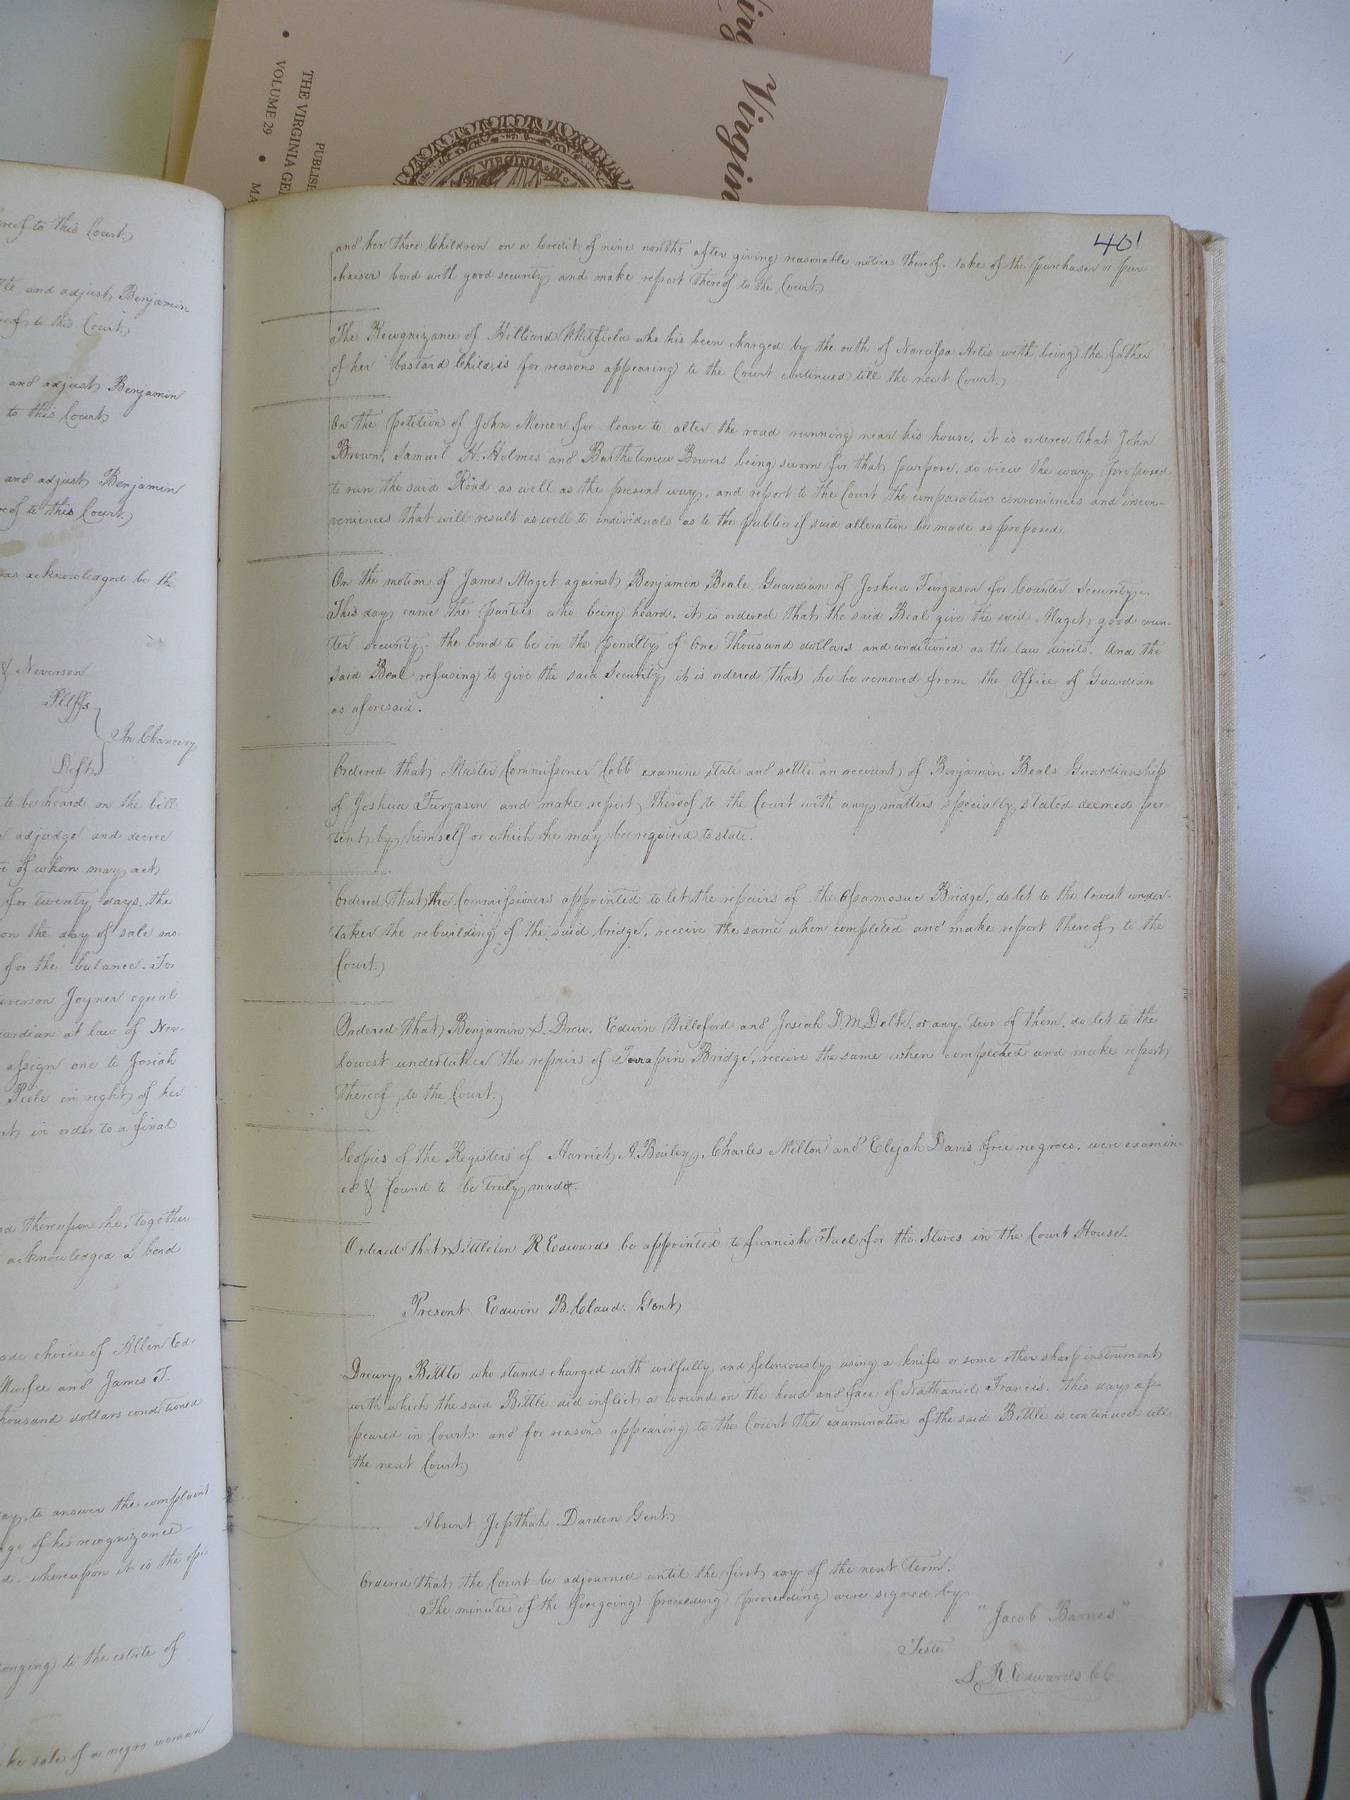 Virgin
THE VIRGINIA GE
VOLUME 29
PUBLIS
MA
VIRGINIA IN
401
and her three Children on a Credit of nine months after giving reasonable notice thereof take of the purchaser or pur
chaser bond with good security and make report thereof to the Court
The Recognizance of Hilliard Whitfield who his been charged by the oath of Narcissa Artis with being the father
of her bastard Child, is for reasons appearing to the Court continued till the next Court
On the petition of John Mercer for leave to alter the road running near his house, it is ordered that John
Brown, Samuel H. Holmes and Bartholomew Bowers being sworn for that purpose, do view the way proposed
to run the said Road as well as the present way, and report to the Court the comparative conveniences and incon-
veniences that will result as well to individuals as to the public if said alteration be made as proposed
On the motion of James Maget against Benjamin Beale Guardian of Joshua Furgason for Counter Security
This day came the parties who being heard, it is ordered that the said Beal give the said Maget good coun-
ter security - the bond to be in the penalty of One thousand dollars and conditioned as the law directs. And the
said Beal refusing to give the said Security it is ordered that he be removed from the Office of Guardian
as aforesaid.
Ordered that Master Commissioner Cobb examine state and settle an account of Benjamin Beals Guardianship
of Joshua Furgason and make report thereof to the Court with any matters specially stated deemed per-
tent by himself or which he may be required to state.
Ordered that the Commissioners appointed to let the repairs of the Apamosuc Bridge, do let to the lowest under-
taker the rebuilding of the said bridge, receive the same when completed and make report thereof to the
Court.
Ordered that Benjamin S. Drew, Edwin Williford and Josiah D. M. Delk, or any two of them, do let to the
lowest undertaker the repairs of Terrapin Bridge, receive the same when completed and make report
thereof to the Court.
Copies of the Registers of Harriet A. Bailey, Charles Milton and Elijah Davis free negroes, were examin-
ed & found to be truly made.
Ordered that Littleton R. Edwards be appointed to furnish Fuel for the Stoves in the Court House.
Present Edwin B. Claud. Gent
Drewry Bittle who stands charged with wilfully and feloniously using a knife or some other sharp instrument
with which the said Bittle did inflict a wound on the head and face of Nathaniel Francis. this day ap-
peared in Court and for reasons appearing to the Court the examination of the said Bittle is continued till
the next Court
Absent Jepthah Darden Gent.
Ordered that the Court be adjourned until the first day of the next term.
The minutes of the foregoing proceeding proceeding were signed by
"Jacob Barnes"
Teste
L. R. Edwards CC
reof to this Court
and adjust Benjamin
to the Court
and adjust Benjamin
to this Court
and adjust Benjamin
of to this Court
as acknowledged be the
& Neverson
Pltffs
In Chancery
Defts
to be heard on the bill
adjudge and decree
of whom may act
for twenty days, the
on the day of sale
for the balance. To
Joyner equal
guardian at law of Nev-
assign one to Josiah
Peele in right of her
in order to a final
thereupon he, together
acknowledged a bond
ade choice of Allen Ed
and James T.
housand dollars conditioned
to answer the complaint
of his recognizance
whereupon it is the opi
onging to the estate of
ke sale of a negro woman